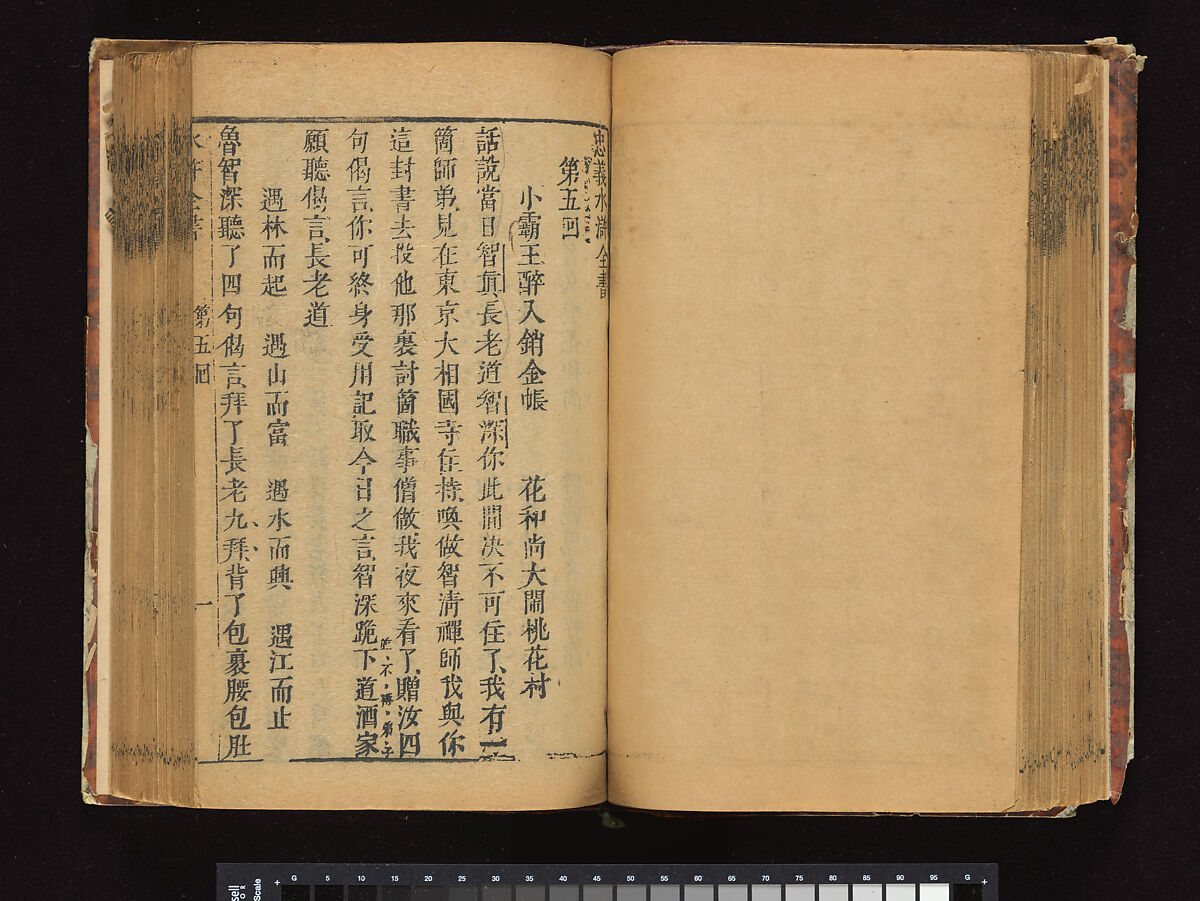 忠義水滸全書
第五回
小霸王醉入銷金帳 花和尚大鬧桃花村
話說當日智眞長老道智深你此間决不可住了我有一
箇師弟見在東京大相國寺住持喚做智清禪師我與你
這封書去投他那裏討箇職事僧做我夜來看了贈汝四
句偈言你可終身受用記取今日之言智深跪下道洒家
願聽偈言長老道
遇林而起 遇山而富 遇水而興 遇江而止
魯智深聽了四句偈言拜了長老九拜背了包裹腰包肚
水許全書 第五回 一
G 5 10 15 20 25 30 35 40 45 50 55 60 65 70 75 80 85 90 95 G